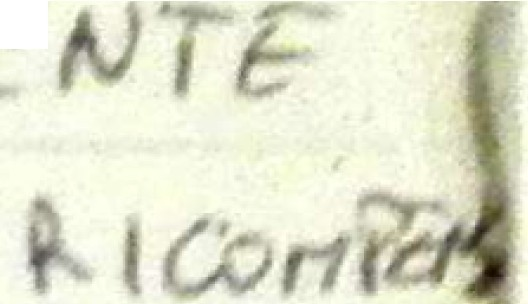 NTE
RICOMPEN